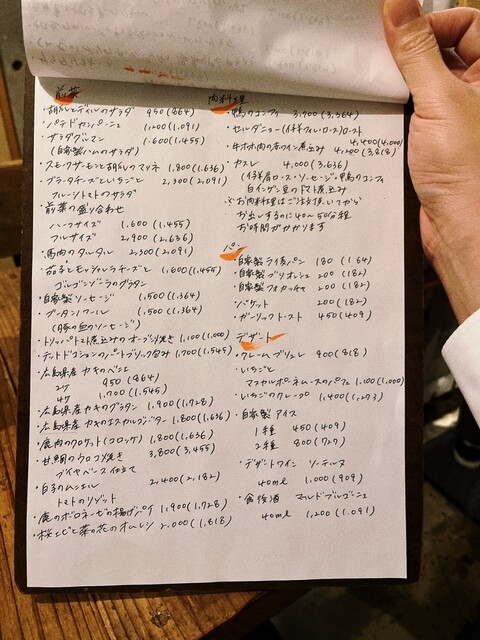 前菜
・胡瓜とディルのサラダ 950(864)
・パテドカンパーニュ 1,200(1,091)
・サラダグルマン 1,600(1,455)
(自家製ハムのサラダ)
・スモークサーモンと胡瓜のマリネ 1,800(1,636)
・ブラータチーズといちごと 2,300(2,091)
フルーツトマトのサラダ
・前菜の盛り合わせ
ハーフサイズ 1,600(1,455)
フルサイズ 2,900(2,636)
・馬肉のタルタル 2,300(2,091)
・茄子とモッツァレラチーズと 1,600(1,455)
ゴルゴンゾーラのグラタン
・自家製ソーセージ 1,500(1,364)
・ブータンノワール 1,500(1,364)
(豚の血のソーセージ)
・トリッパトマト煮込みのオーブン焼き 1,100(1,000)
・テットドコションのパートブリック包み 1,700(1,545)
・広島県産カキのベニエ
2ケ 950(864)
4ケ 1,700(1,545)
・広島県産カキのグラタン 1,900(1,728)
・広島県産カキのエスカルゴバター 1,800(1,636)
・鹿肉のクロケット(コロッケ) 1,800(1,636)
・甘鯛のウロコ焼き 3,800(3,455)
ブイヤベース仕立て
・白子のムニエル 2,400(2,182)
トマトのリゾット
・鹿のボロネーゼの揚げパイ 1,900(1,728)
・桜エビと菜の花のオムレツ 2,000(1,818)
肉料理
・鴨のコンフィ 3,700(3,364)
・セルダニョー(仔羊フィレ・ロース)ロースト
4,400(4,000)
・牛ホホ肉の赤ワイン煮込み 4,200(3,818)
・カスレ 4,000(3,636)
(仔羊肩ロース・ソーセージ・鴨のコンフィ
白インゲン豆のトマト煮込み)
※お肉料理はご注文頂いてから
お出しするのに40〜50分程
お時間がかかります
パン
・自家製ライ麦パン 180(164)
・自家製ブリオッシュ 200(182)
・自家製フォカッチャ 200(182)
・バケット 200(182)
・ガーリックトースト 450(409)
デザート
・クレームブリュレ 900(818)
・いちごと
マスカルポーネムースのパフェ 1,100(1,000)
・いちごのクレープ 1,400(1,273)
・自家製アイス
1種 450(409)
2種 800(727)
・デザートワイン ソーテルヌ
40ml 1,000(909)
・食後酒 マルドブルゴーニュ
40ml 1,200(1,091)